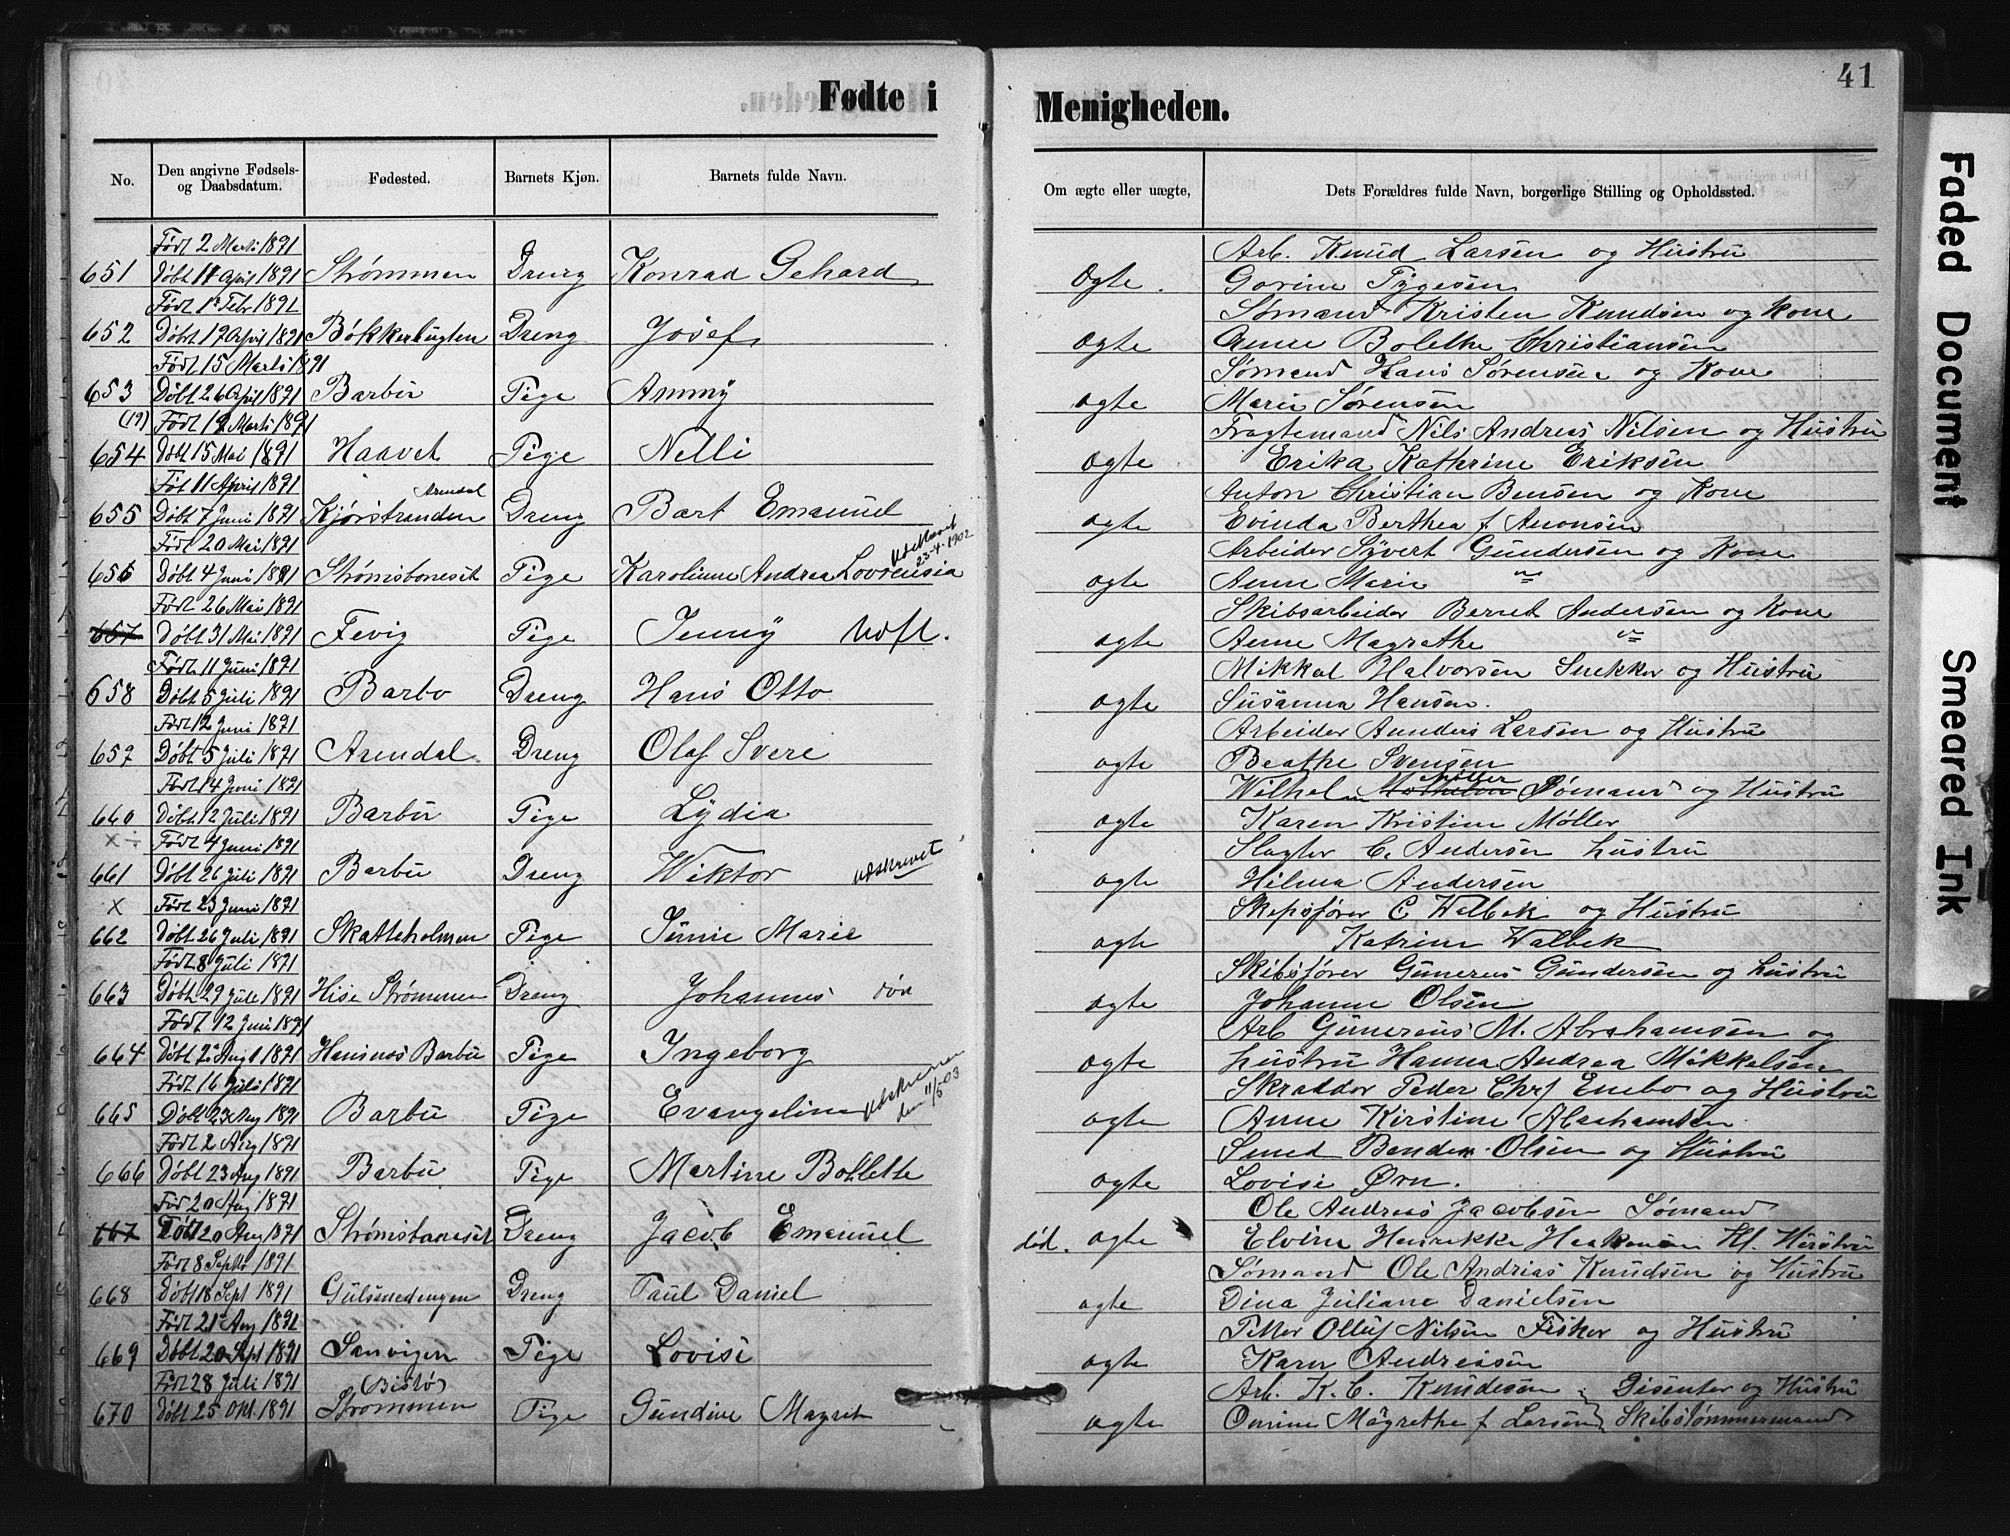 Fødte i Menigheden.
41
No. Den angivne Fødsels- og Daabsdatum. Fødested. Barnets Kjøn. Barnets fulde Navn. Om ægte eller uægte, Dets Forældres fulde Navn, borgerlige Stilling og Opholdssted.
Født 2 Marts 1891 Arb. Knud Larsen og Hustru
651 Døbt 11 April 1891 Strømmen Dreng Konrad Gehard Ogte. Gorine Tygesen
Født 1 Febr 1891 Sømand Kristen Knudsen og Kone
652 Døbt 19 April 1891 Bökkerbugten Dreng Josef Ogte Anne Bolethe Christiansen
Født 15 Marts 1891 Sømand Hans Sørensen og Kone
653 Døbt 26 April 1891 Barbu Pige Ammy ogte Marie Sørensen
(19) Født 19 Marts 1891 Fragtemand Nils Andreas Nilsen og Hustru
654 Døbt 15 Mai 1891 Haavet Pige Nelli Ogte Erika Kathrine Eriksen
Føt 11 April 1891 Arendal Anton Christian Bensen og Kone
655 Døbt 7 Juni 1891 Kjørstranden Dreng Bart Emanuel ogte Evinda Berthea f. Aronsen
Født 20 Mai 1891 Arbeider Syvert Gundersen og Kone
656 Døbt 4 Juni 1891 Strømsboneset Pige Karolinne Andrea Lovrensia 23-4-1902 ogte Anne Marie
Født 26 Mai 1891 Skibsarbeider Bernet Andersen og Kone
657 Døbt 31 Mai 1891 Fevig Pige Jenny Udfl. ogte Anne Magrethe
Født 11 Juni 1891 Mikkal Halvorsen Snekker og Hustru
658 Døbt 5 Juli 1891 Barbo Dreng Hans Otto ogte Susanna Hansen.
Født 12 Juni 1891 Arbeider Aunders Larsen og Hustru
659 Døbt 5 Juli 1891 Arendal Dreng Olaf Svere ogte Beathe Svensen
Født 14 Juni 1891 Wilhelm Møller Sømand og Hustru
660 Døbt 12 Juli 1891 Barbu Pige Lydia ogte Karen Kristine Møller
X ÷ Født 4 Juni 1891 Slagter C. Andersen hustru
661 Døbt 26 Juli 1891 Barbu Dreng Wiktor udskrevet ogte Hilma Andersen
X Født 23 Juni 1891 Skepsfører C Walbek og Hustru
662 Døbt 26 Juli 1891 Skatteholmen Pige Junie Marie ogte Katrine Walbek
Født 8 Juli 1891 Skibsfører Gunerus Gundersen og hustru
663 Døbt 29 Jule 1891 Hise Strømmen Dreng Johannes død ogte Johanne Olsen
Født 12 Juni 1891 Arb Gunereus M. Abrahamsen og
664 Døbt 2 Aug 1891 Hansnes Barbu Pige Ingeborg ogte hustru Hanna Andrea Mikkelsen
Født 16 Juli 1891 Skradder Peder Chr. Enebo og Hustru
665 Døbt 23 Aug 1891 Barbu Pige Evangeline udskreven den 11/5 03 ogte Anne Kirstine Abrahamsen
Født 2 Aug 1891 Smed Bender Olsen og Hustru
666 Døbt 23 Aug 1891 Barbu Pige Martine Bollette ogte Lovise Ørn.
Fød 20 Aug 1891 Ole Andreas Jacobsen Sømand
667 Døbt 20 Aug 1891 Strømsboneset Dreng Jacob Emanuel død. ogte Elvine Henrikke Haakensen Hustru
Født 8 Septb 1891 Sømand Ole Andrias Knudsen og Hustru
668 Døbt 18 Sept 1891 Gulsmedengen Dreng Paul Daniel ogte Dina Juliane Danielsen
Født 21 Aug 1891 Petter Olluf Nilsen Fisker og Hustru
669 Døbt 20 Spt 1891 Sanvigen Pige Lovise ogte Karen Andreasen
Født 28 Juli 1891 (Bisto) Arb. K. C. Knudesen Disenter og Hustru
670 Døbt 25 Okt. 1891 Strømmen Pige Gundine Magret ogte Omine Magrethe f Larsen Skibstømmermand
Faded Document Smeared Ink